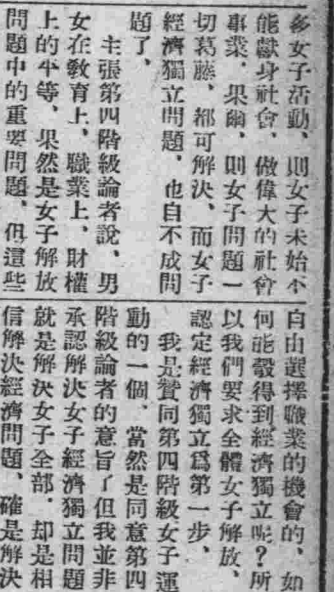 多女子活動、則女子未始不
能獻身社會、做偉大的社會
事業、果爾、則女子問題一
切葛藤、都可解決、而女子
經濟獨立問題、也自不成問
題了、
主張第四階級論者說、男
女在教育上、職業上、財權
上的平等、果然是女子解放
問題中的重要問題、但這些
自由選擇職業的機會的、如
何能彀得到經濟獨立呢？所
以我們要求全體女子解放、
認定經濟獨立爲第一步、
我是贊同第四階級女子運
動的一個、當然是同意第四
階級論者的意旨了但我並非
承認解決女子經濟獨立問題
就是解決女子全部、却是相
信解決經濟問題、確是解決